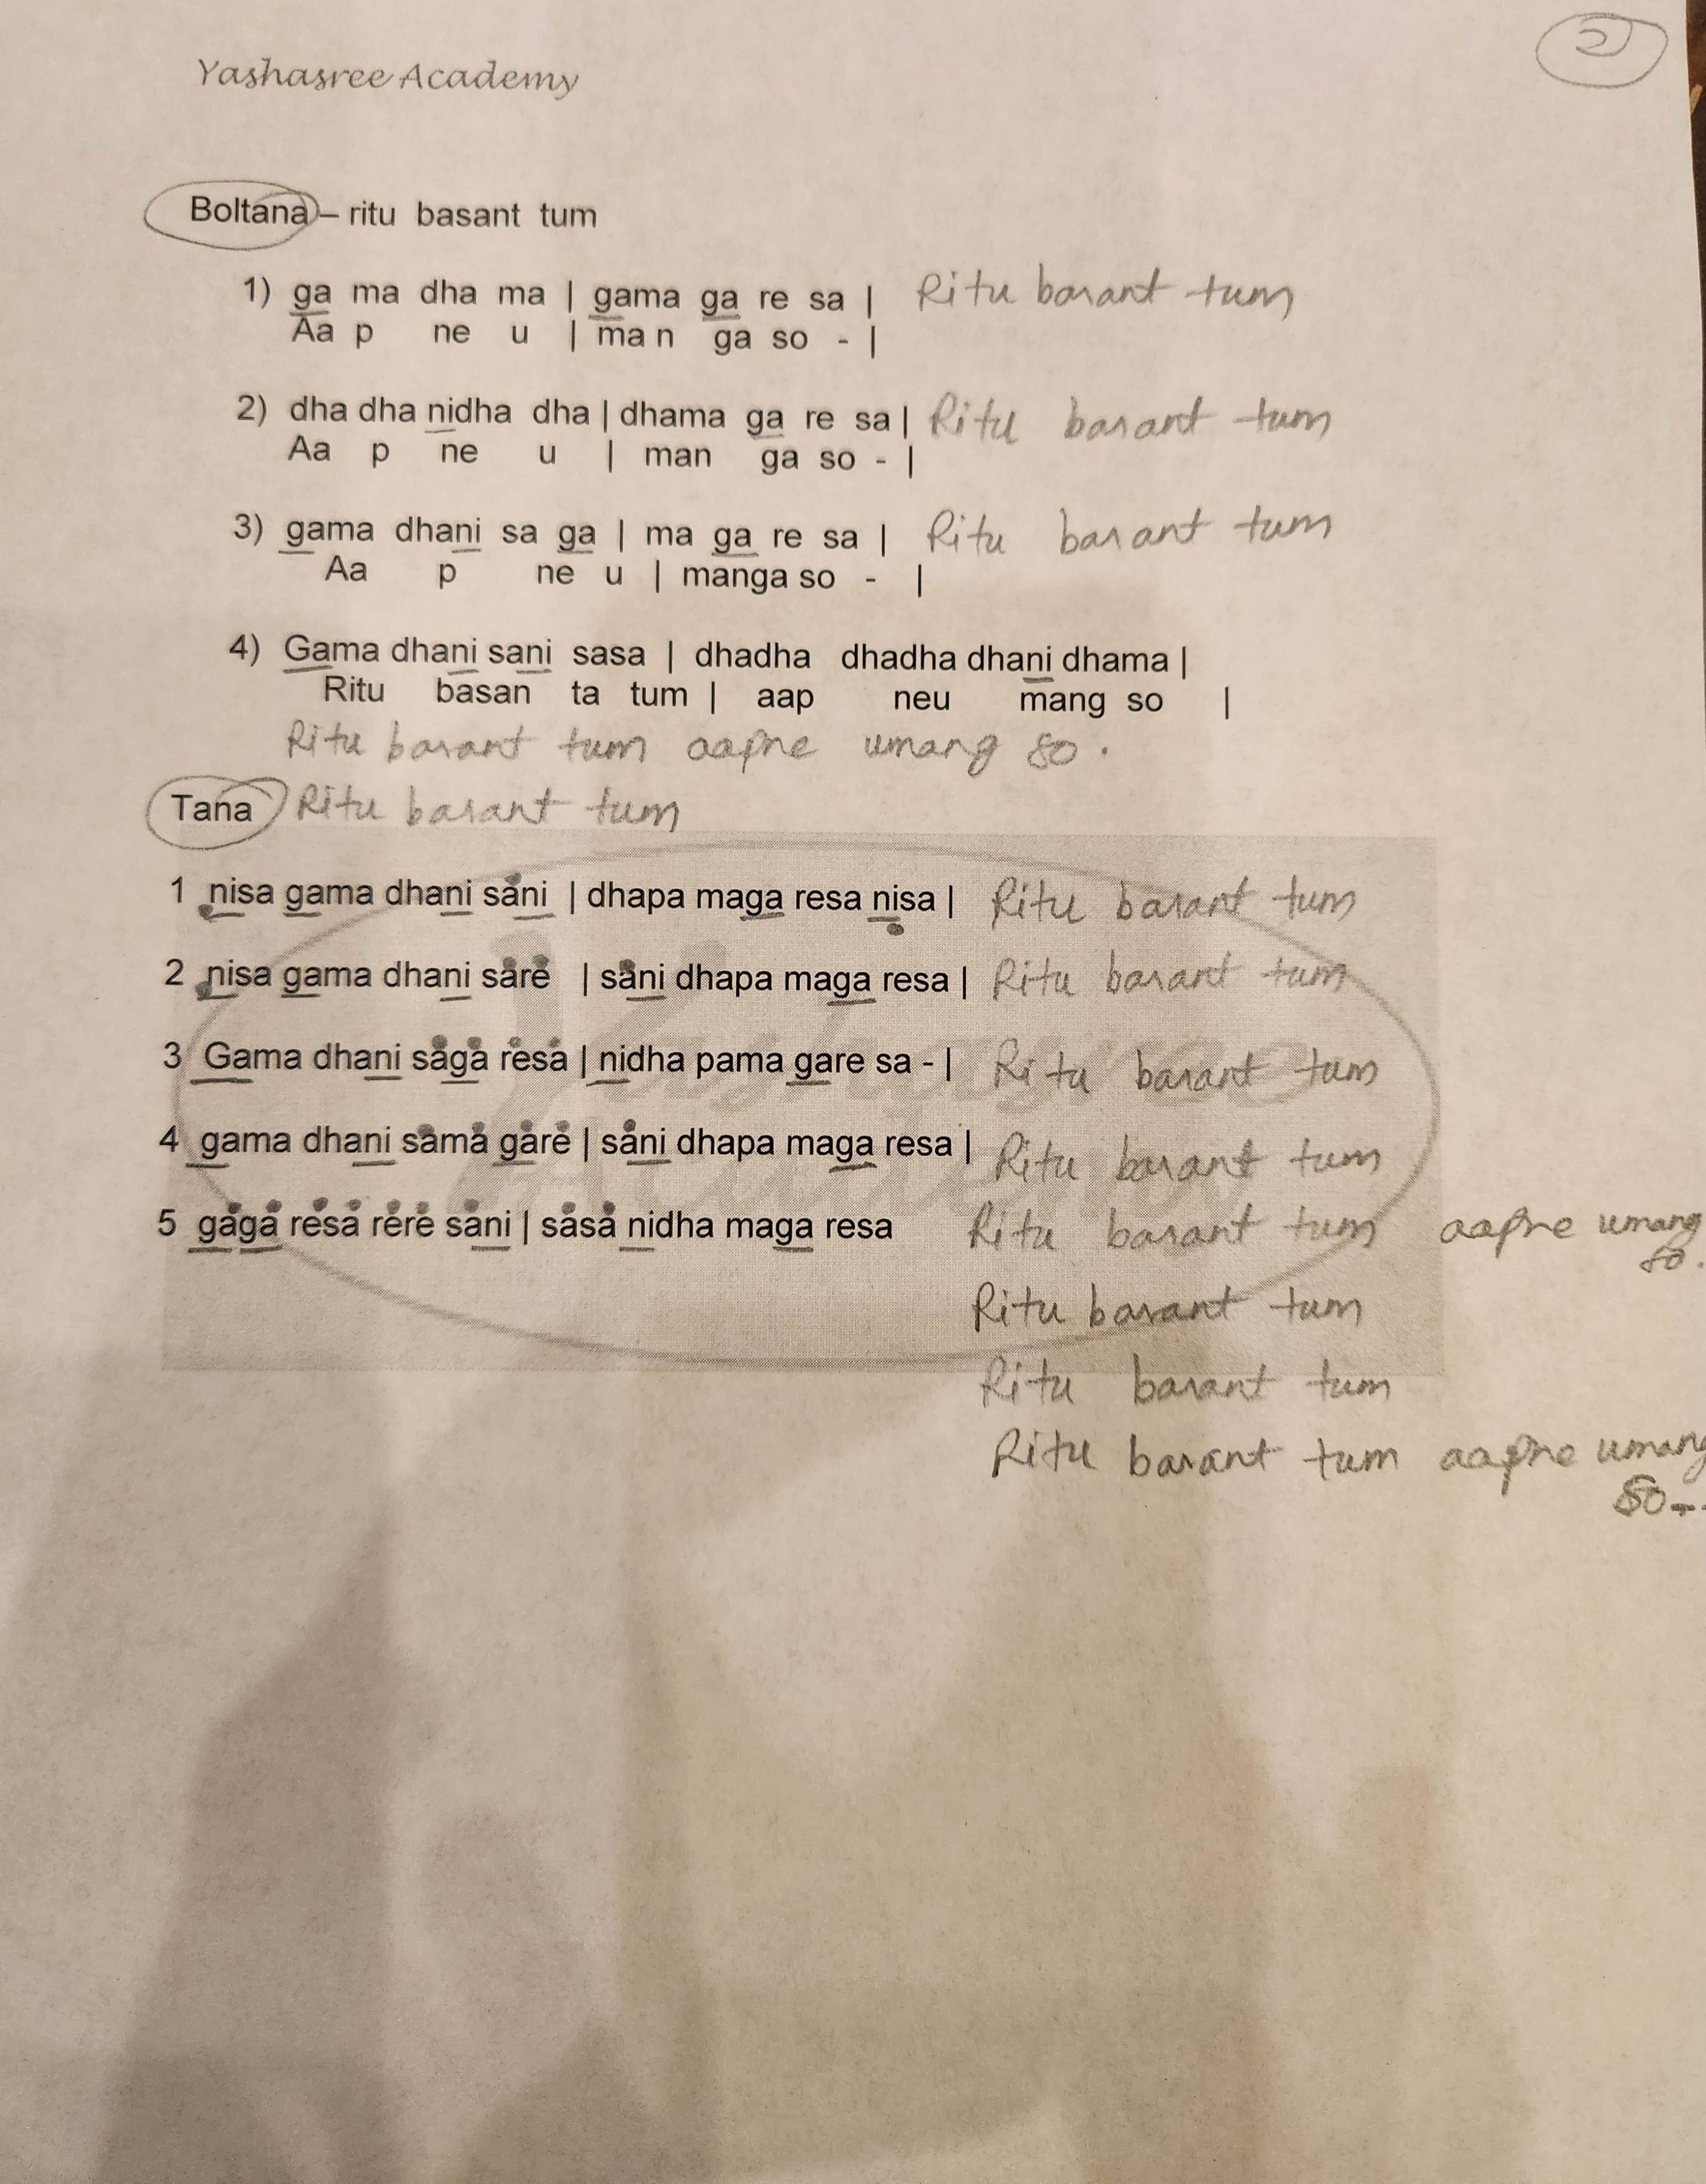 Yashasree Academy
2
Boltana – ritu basant tum
1) ga ma dha ma | gama ga re sa | Ritu basant tum
Aa p ne u | man ga so - |
2) dha dha nidha dha | dhama ga re sa | Ritu basant tum
Aa p ne u | man ga so - |
3) gama dhani sa ga | ma ga re sa | Ritu basant tum
Aa p ne u | manga so - |
4) Gama dhani sani sasa | dhadha dhadha dhani dhama |
Ritu basan ta tum | aap neu mang so |
Ritu basant tum aapne umang so.
Tana Ritu basant tum
1 nisa gama dhani sani | dhapa maga resa nisa | Ritu basant tum
2 nisa gama dhani sare | sani dhapa maga resa | Ritu basant tum
3 Gama dhani saga resa | nidha pama gare sa - | Ritu basant tum
4 gama dhani sama gare | sani dhapa maga resa | Ritu basant tum
5 gaga resa rere sani | sasa nidha maga resa Ritu basant tum aapne umang
so.
Ritu basant tum
Ritu basant tum
Ritu basant tum aapne umang
so--